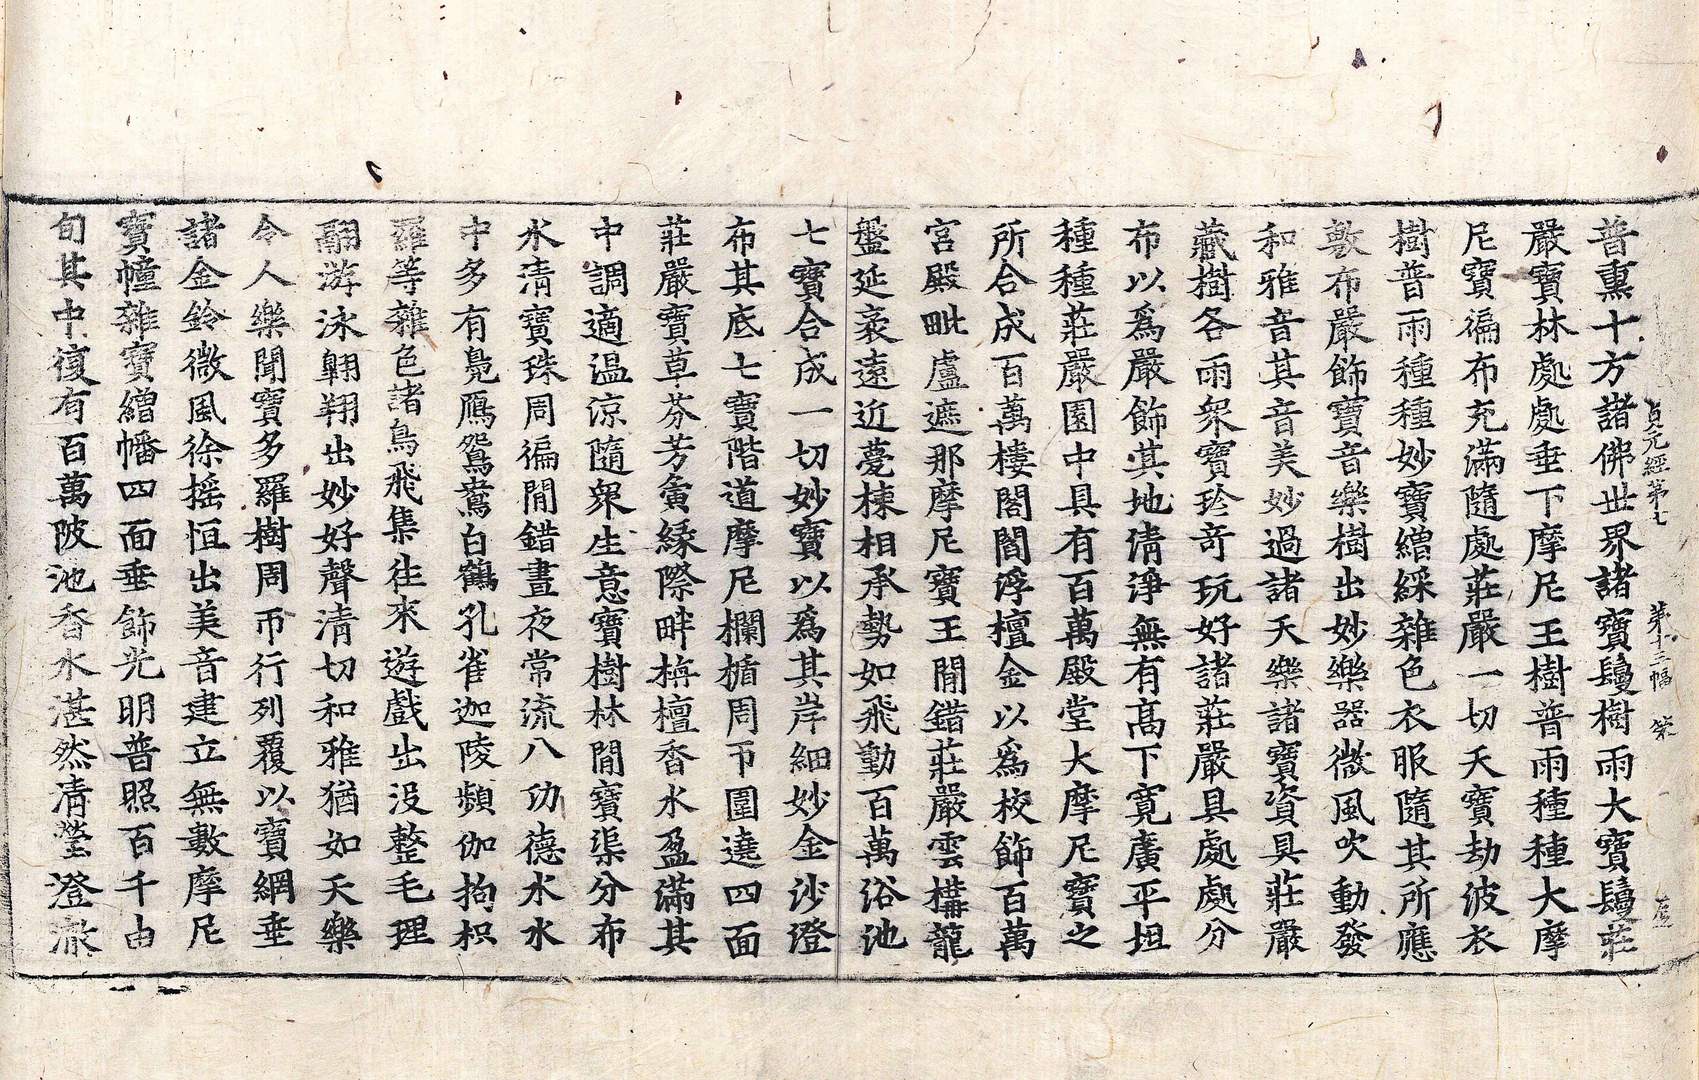 貞元經第七 第十二幅
普熏十方諸佛世界諸寶鬘樹雨大寶鬘莊
嚴寶林處處垂下摩尼王樹普雨種種大摩
尼寶徧布充滿隨處莊嚴一切天寶劫波衣
樹普雨種種妙寶繒綵雜色衣服隨其所應
敷布嚴飾寶音樂樹出妙樂器微風吹動發
和雅音其音美妙過諸天樂諸寶資具莊嚴
藏樹各雨衆寶珍奇玩好諸莊嚴具處處分
布以爲嚴飾其地淸淨無有高下寬廣平坦
種種莊嚴園中具有百萬殿堂大摩尼寶之
所合成百萬樓閣閻浮檀金以爲校飾百萬
宮殿毗盧遮那摩尼寶王閒錯莊嚴雲構龍
盤延袤遠近甍棟相承勢如飛動百萬浴池
七寶合成一切妙寶以爲其岸細妙金沙澄
布其底七寶階道摩尼欄楯周帀圍遶四面
莊嚴寶草芬芳夤緣際畔栴檀香水盈滿其
中調適温涼隨衆生意寶樹林閒寶渠分布
水清寶珠周徧閒錯晝夜常流八功德水水
中多有鳧鴈鴛鴦白鶴孔雀迦陵頻伽拘枳
羅等雜色諸鳥飛集往來遊戲出没整毛理
翮游泳翺翔出妙好聲清切和雅猶如天樂
令人樂聞寶多羅樹周帀行列覆以寶網垂
諸金鈴微風徐搖恒出美音建立無數摩尼
寶幢雜寶繒幡四面垂飾光明普照百千由
旬其中復有百萬陂池香水湛然淸瑩澄澈